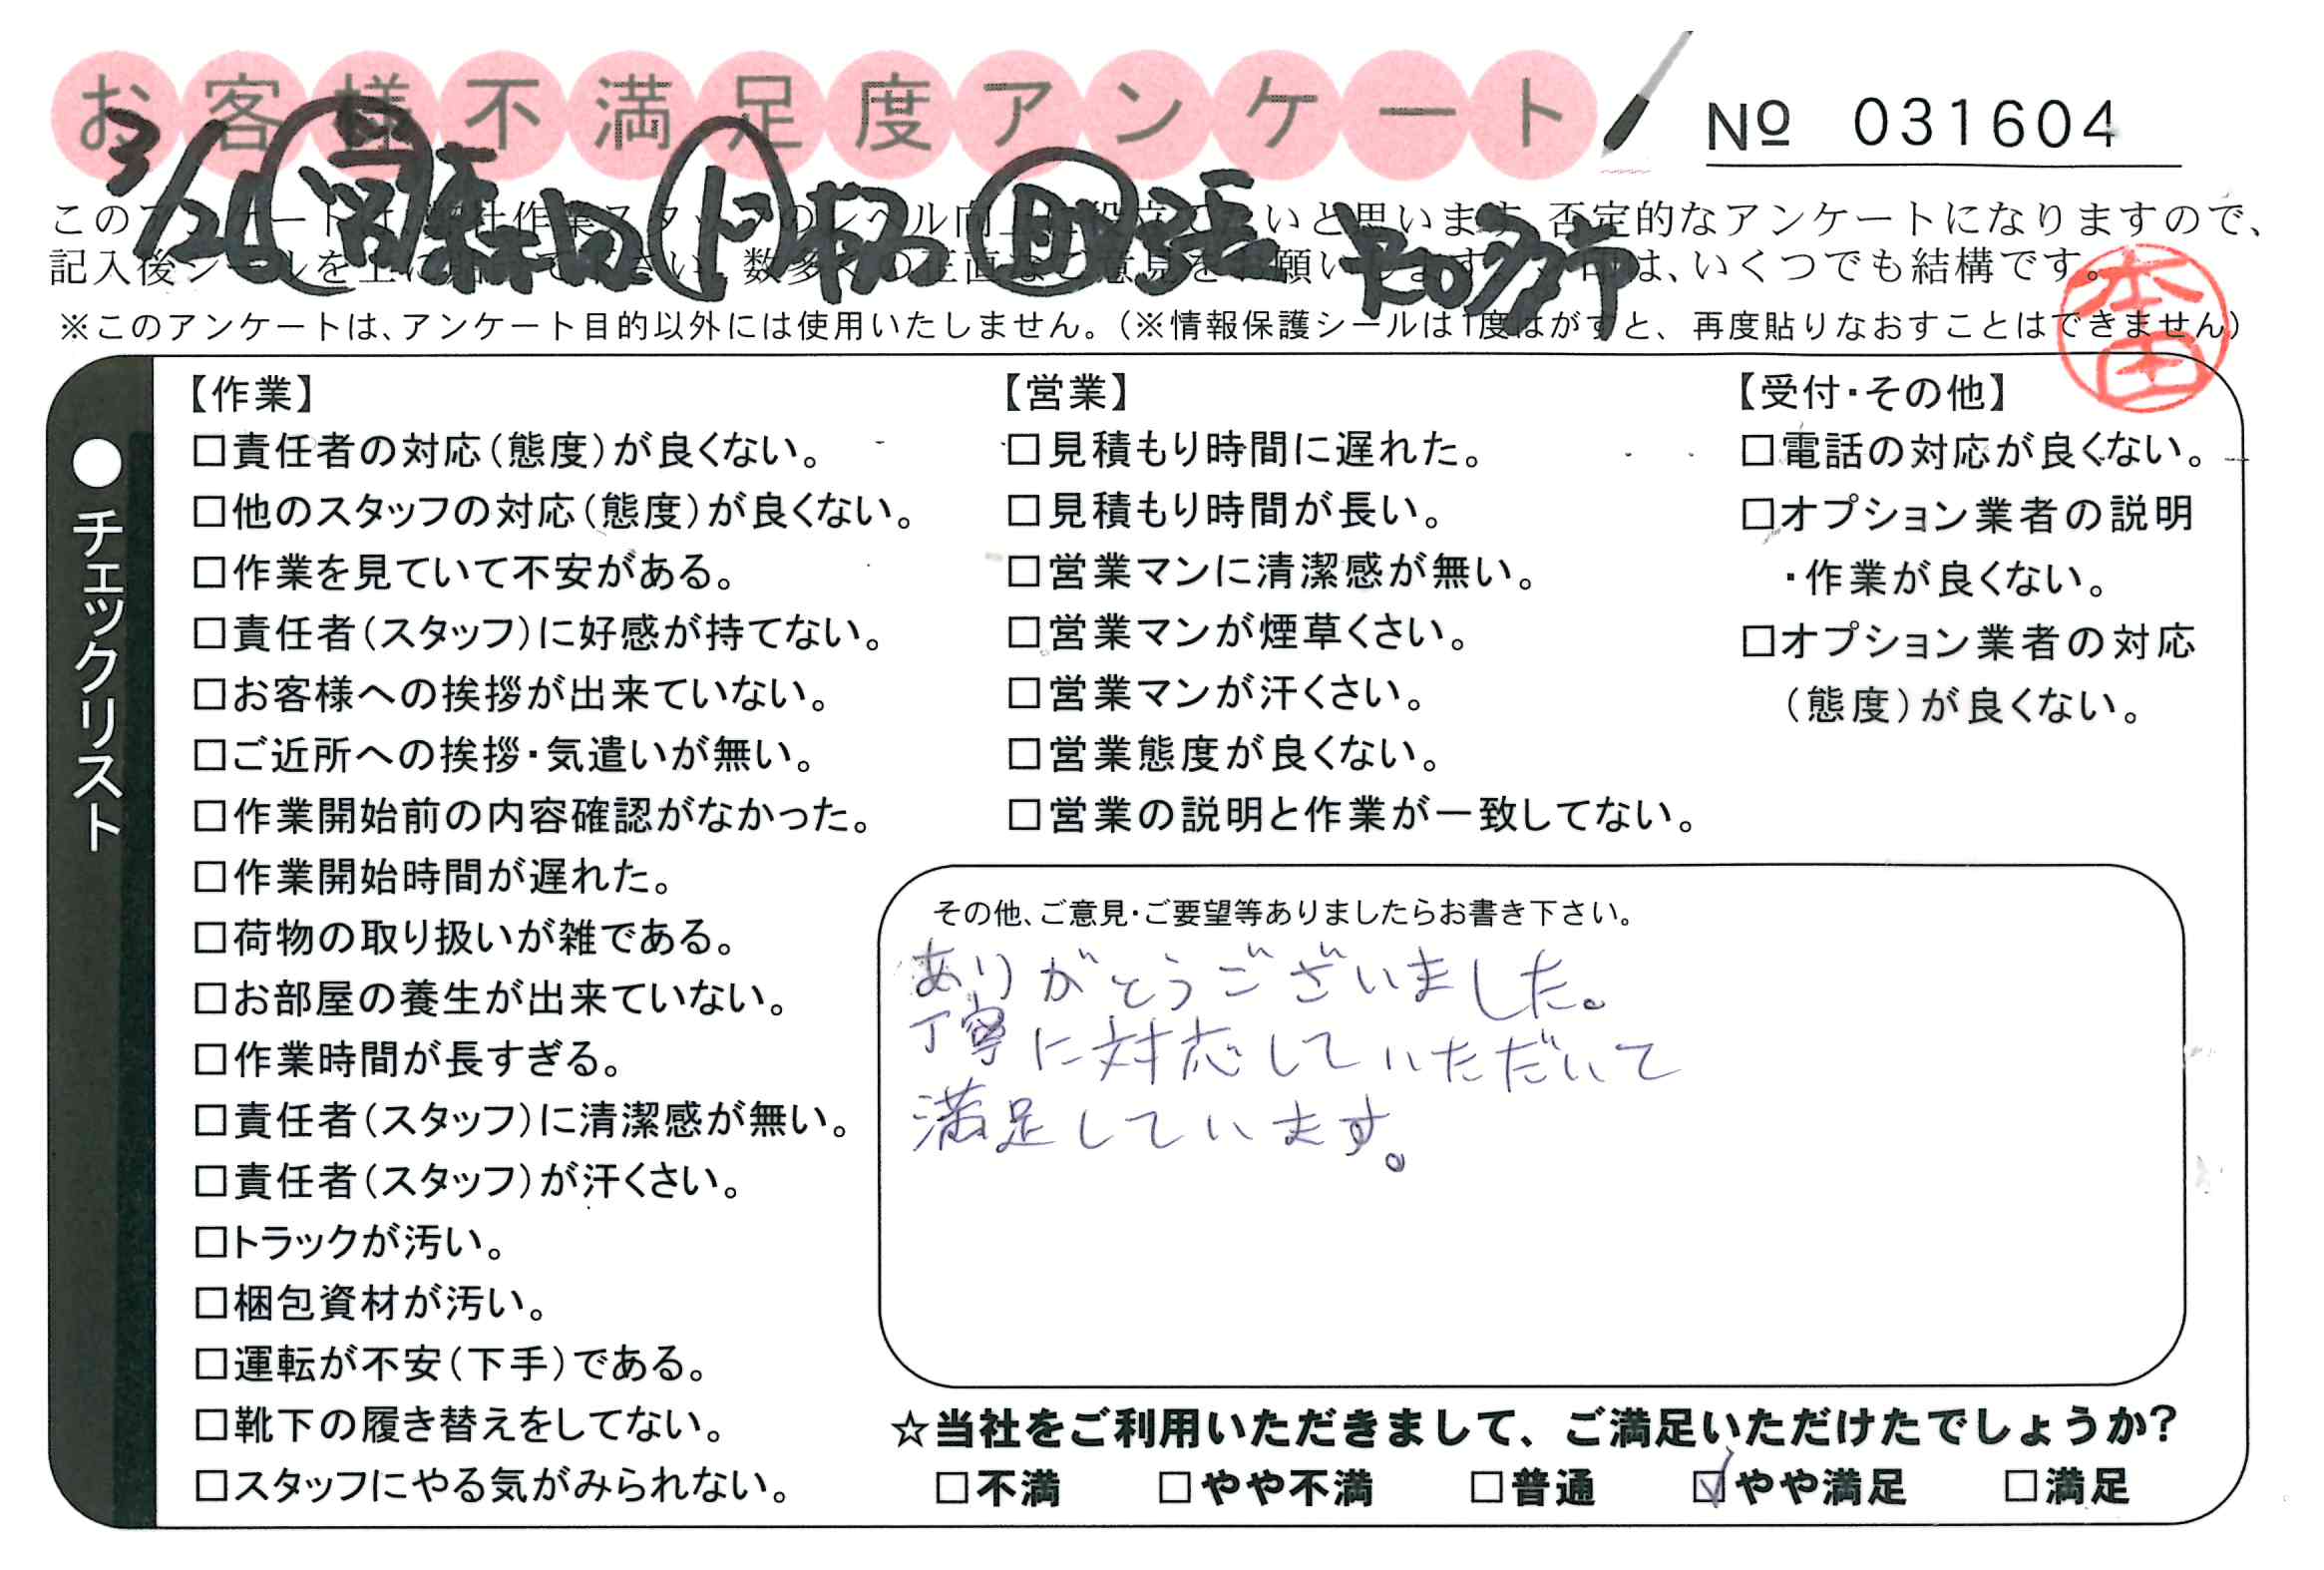 お客様不満足度アンケート
№ 031604
3/26 森田 ド 助 張 知多市
いと思います。否定的なアンケートになりますので、
は、いくつでも結構です。
※このアンケートは、アンケート目的以外には使用いたしません。(※情報保護シールは1度はがすと、再度貼りなおすことはできません)
本田
●チェックリスト
【作業】
□責任者の対応(態度)が良くない。
□他のスタッフの対応(態度)が良くない。
□作業を見ていて不安がある。
□責任者(スタッフ)に好感が持てない。
□お客様への挨拶が出来ていない。
□ご近所への挨拶・気遣いが無い。
□作業開始前の内容確認がなかった。
□作業開始時間が遅れた。
□荷物の取り扱いが雑である。
□お部屋の養生が出来ていない。
□作業時間が長すぎる。
□責任者(スタッフ)に清潔感が無い。
□責任者(スタッフ)が汗くさい。
□トラックが汚い。
□梱包資材が汚い。
□運転が不安(下手)である。
□靴下の履き替えをしてない。
□スタッフにやる気がみられない。
【営業】
□見積もり時間に遅れた。
□見積もり時間が長い。
□営業マンに清潔感が無い。
□営業マンが煙草くさい。
□営業マンが汗くさい。
□営業態度が良くない。
□営業の説明と作業が一致してない。
【受付・その他】
□電話の対応が良くない。
□オプション業者の説明
・作業が良くない。
□オプション業者の対応
(態度)が良くない。
その他、ご意見・ご要望等ありましたらお書き下さい。
ありがとうございました。
丁寧に対応していただいて
満足しています。
☆当社をご利用いただきまして、ご満足いただけたでしょうか?
□不満 □やや不満 □普通 ☑やや満足 □満足